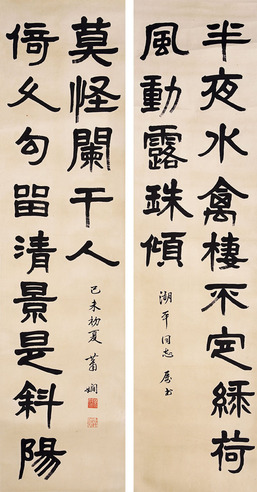 半夜水禽棲不定綠荷
風動露珠傾
湖平同志 屬書
莫怪闌干人
倚久勾留清景是斜陽
己未初夏 蕭嫻